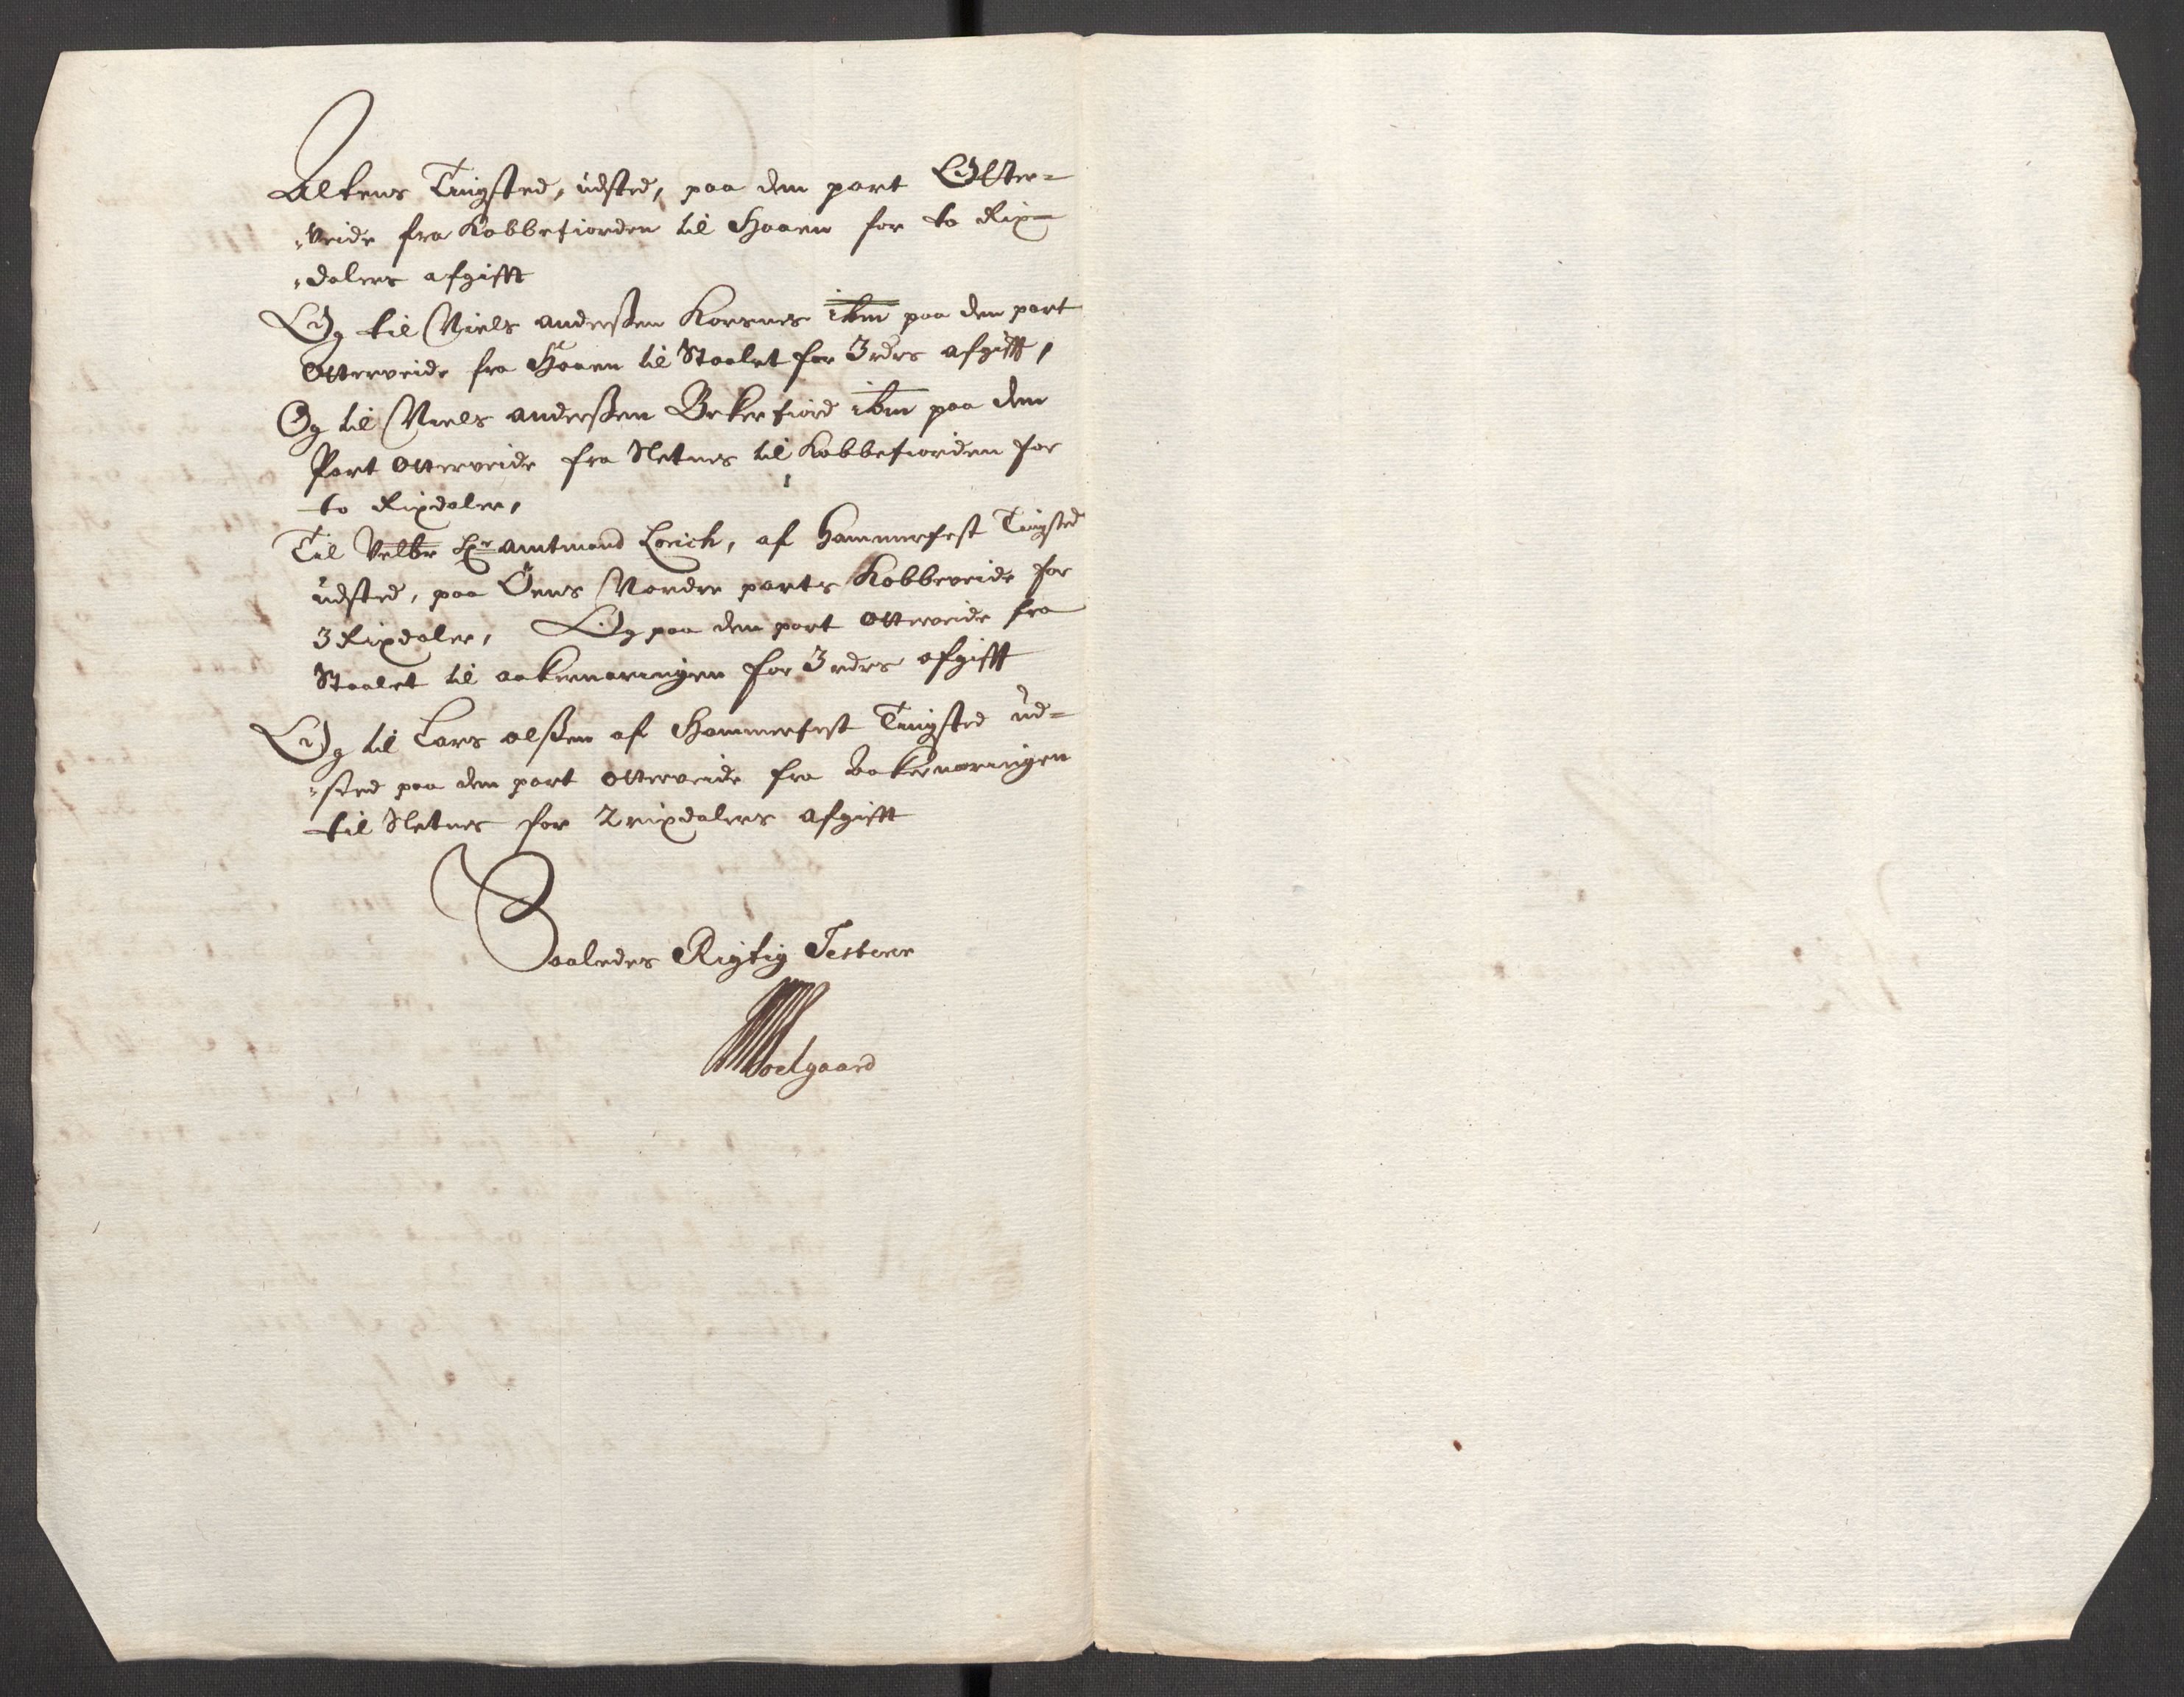 Altens Tingsted, udsted, paa den part Otter-
„veide fra Kobbefiorden til Haaen for to Rix-
„dalers afgifft
Og til Niels anderßen Korsnes ibm paa den part
Otterveide fra Haaen til Staalet for 3 rdrs afgifft,
Og til Niels anderßen Bekerfiord ibm paa den
Part Otterveide fra Sletnes til Kobbefiorden for
to Rixdaler,
Til Velbr Hr Amtmand Lorich, af Hammerfest Tingsted
udsted, paa Øens Nordre parts Kobbeveide for
3 Rixdaler, Og paa den part Otterveide fra
Staalet til aakernæringen for 3 rdrs afgifft
Og til Lars olßen af Hammerfest Tingsted ud-
„sted paa den part otterveide fra aakernæringen
til Sletnes for 2 rixdalers afgifft
Saaledes Rigtig Testerer